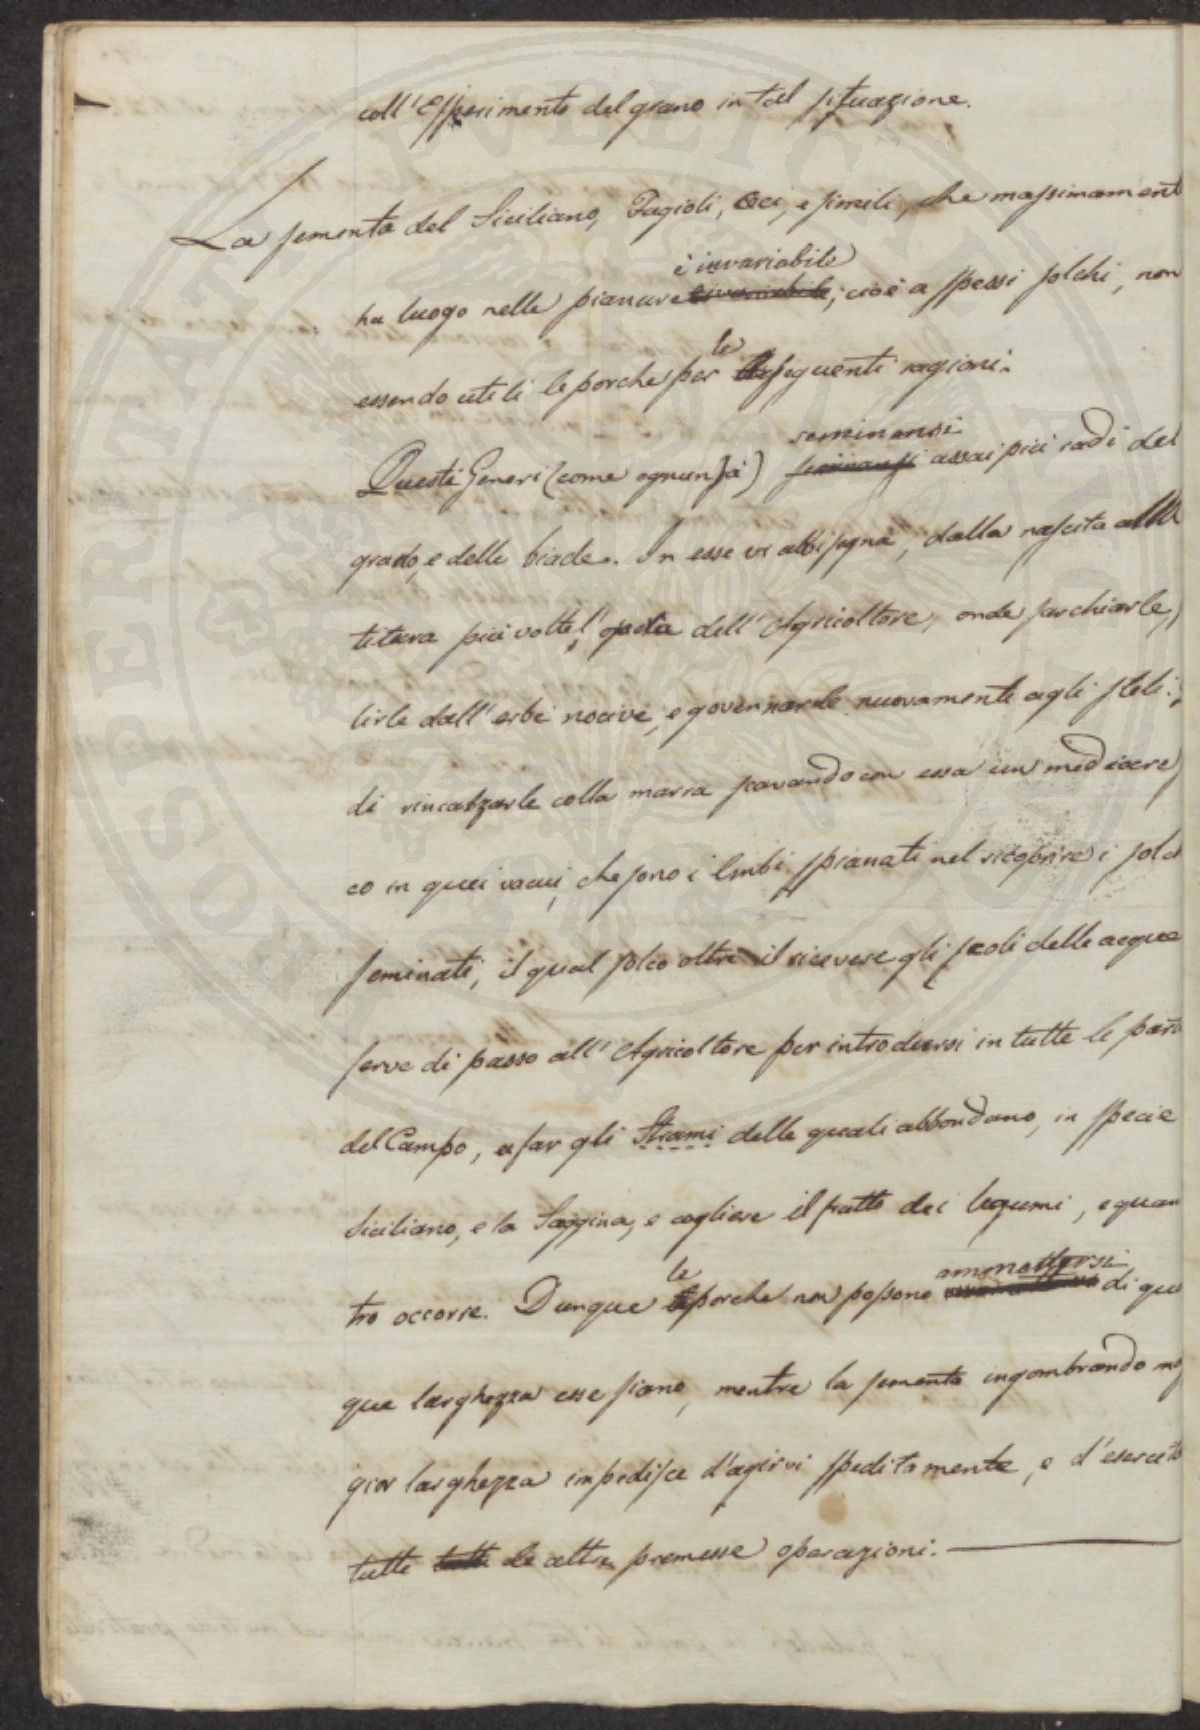 coll'Esperimento del grano in tal situazione.
La sementa del Siciliano, Fagioli, Ceci, e simili, che massimament
è invariabile
ha luogo nelle pianure; cioè a spessi solchi, non
le
essendo utili le porche per seguenti ragioni.
seminansi
Questi Generi (come ognun sà) seminansi assai più radi del
grano, e delle biade. In esse vi abbisogna, dalla nascita alla
titura più volte l'opera dell'Agricoltore, onde sarchiarle,
lirle dall'erbe nocive, e governarle nuovamente agli steli;
di rincalzarle colla marra scavando con essa un mediocre
co in quei vacui, che sono i limbi spianati nel ricoprire i solc
seminati, il qual solco oltre il ricevere gli scoli delle acque
serve di passo all'Agricoltore per introdursi in tutte le parti
del Campo, a far gli Strami delle quali abbondano, in specie
Siciliano, e la Saggina, e cogliere il frutto dei legumi, e quan
le ammettersi
tro occorre. Dunque porche non possono di qu
que larghezza esse siano, mentre la sementa ingombrando mag
gior larghezza impedisce d'agirvi speditamente, e d'esercita
tutte tutte le altre premesse operazioni.